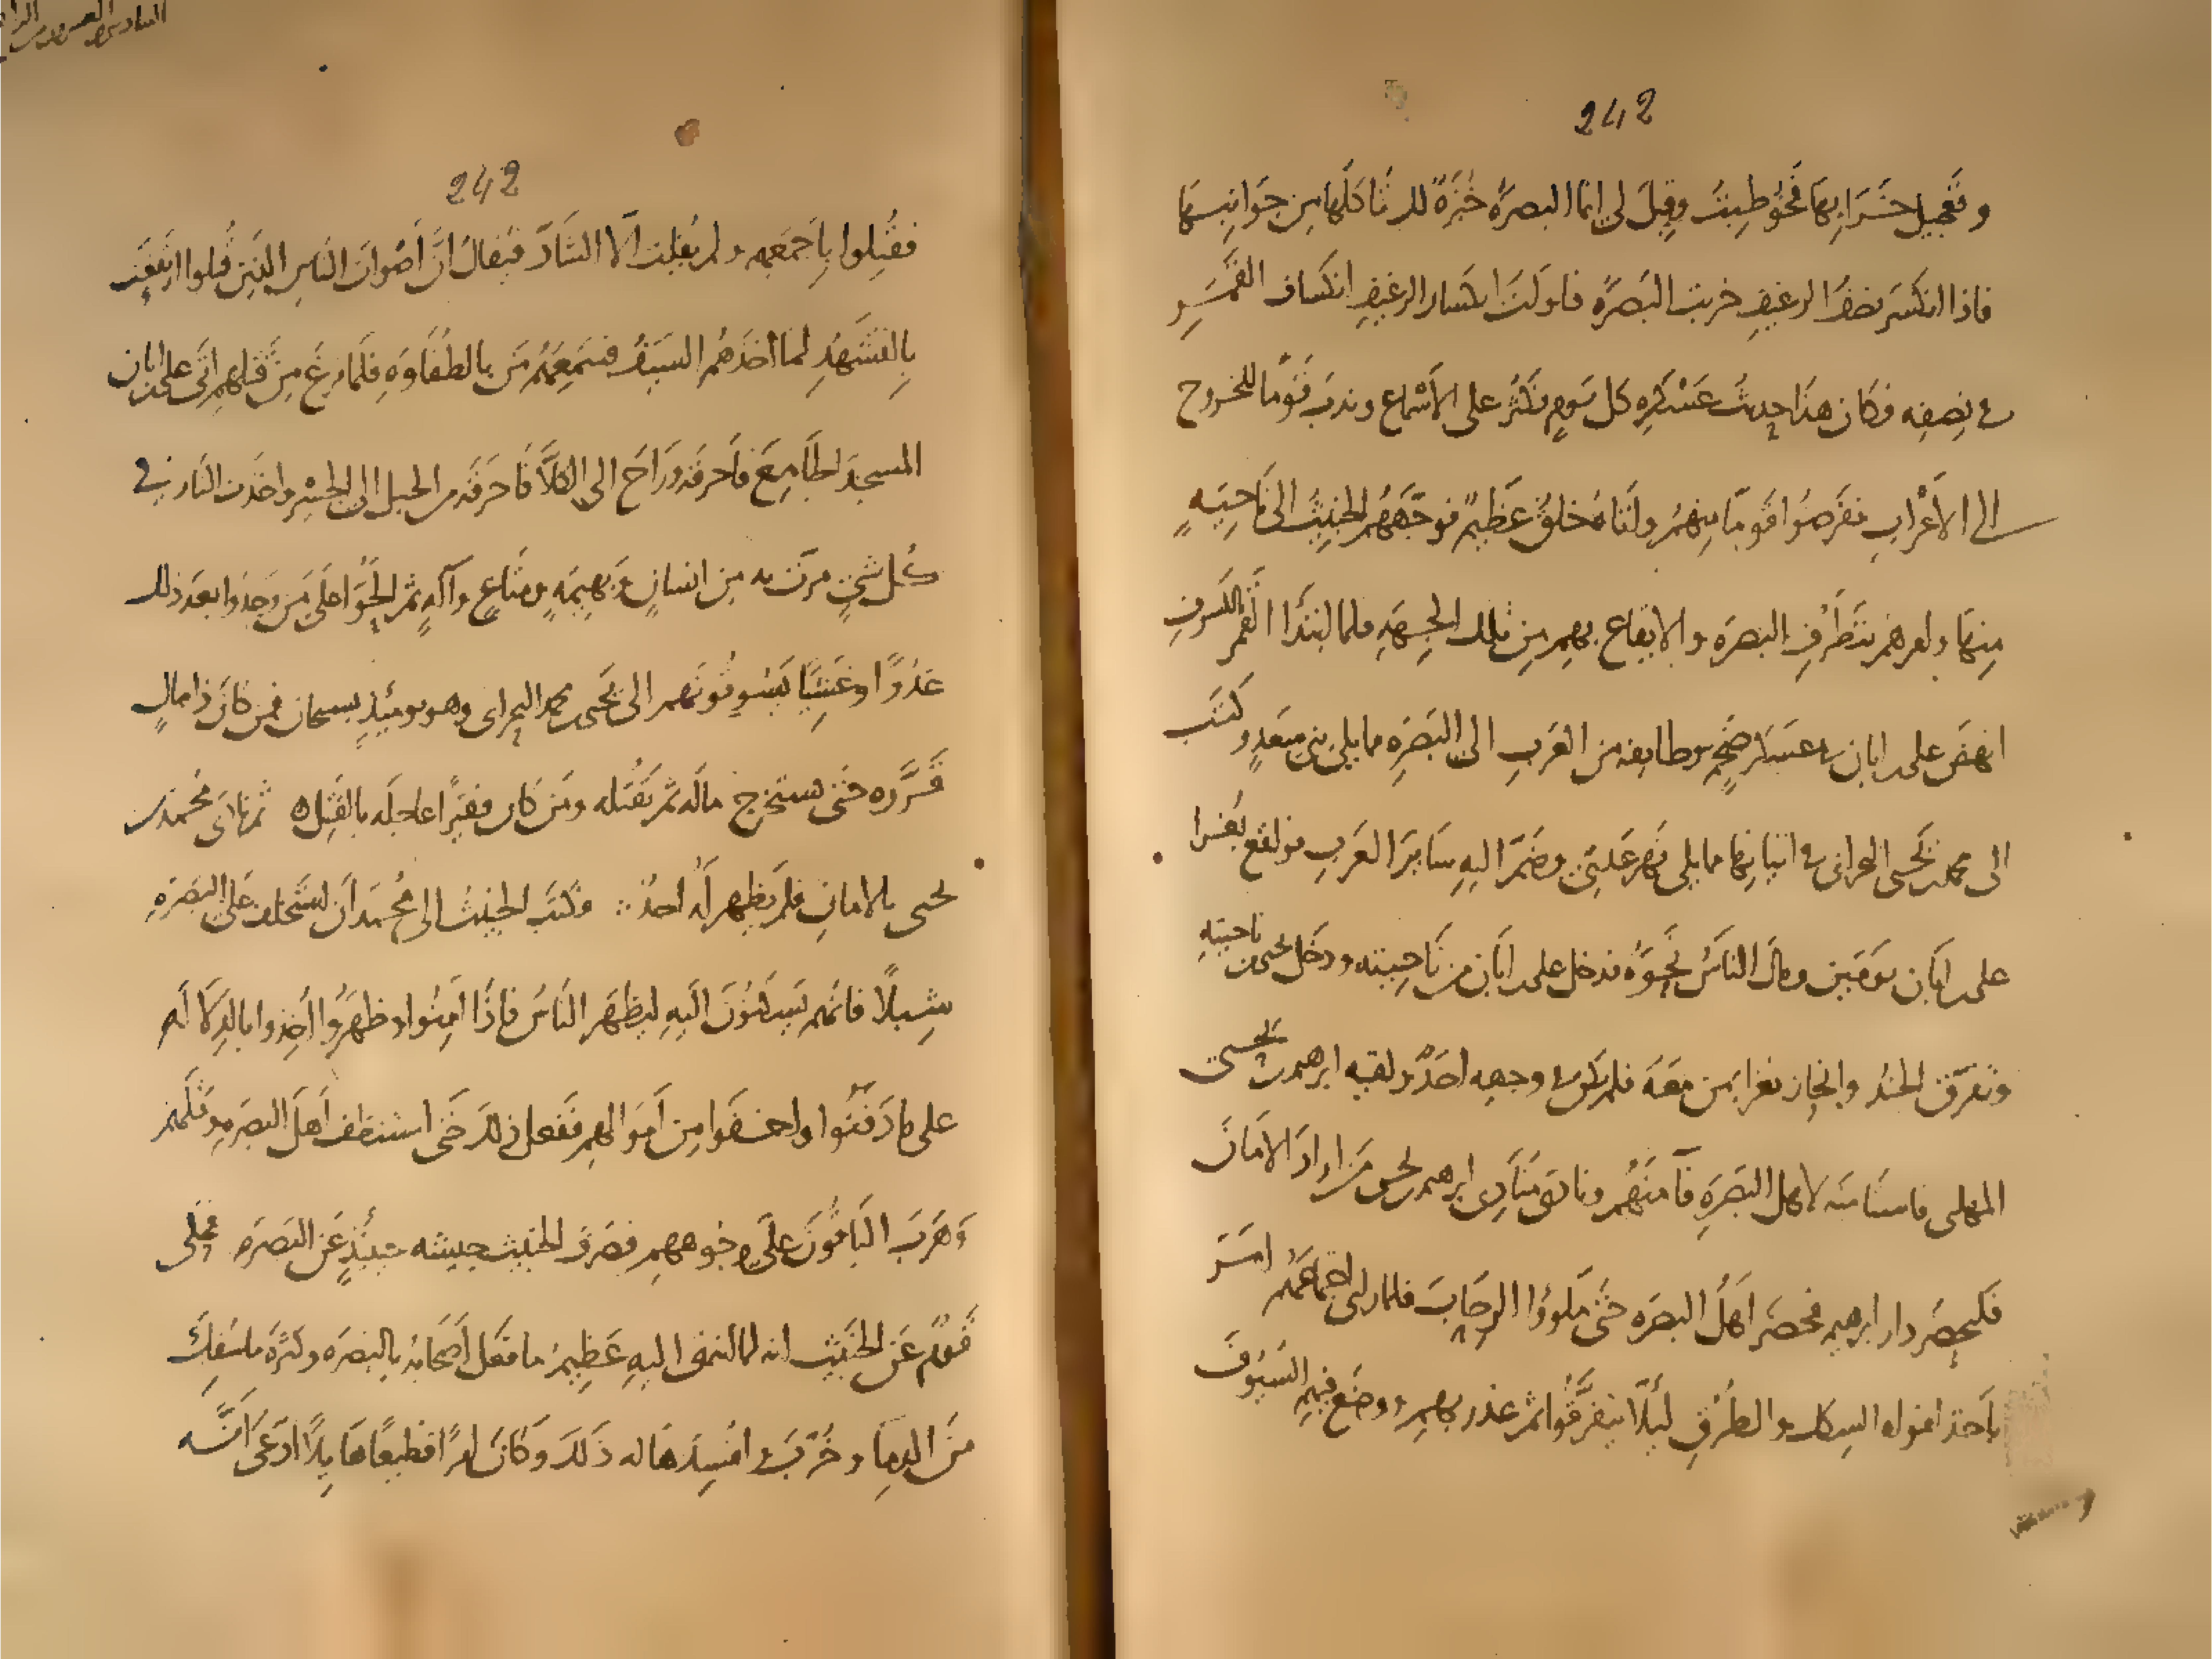 242
وتعجيل خرابها فخوطبت وقيل لي انما البصرة خبزة لك تاكلها من جوانبها
فاذا انكسر نصف الرغيف خربت البصرة فاولت انكسار الرغيف انكساف القمر
في نصفه فكان هذا حديث عسكره كل يوم يكثر على الاسماع وندب قوما للخروج
الى الاعراب ففرضوا قوما منهم واتاه خلق عظيم فوجههم الخبيث الى ناحية
منها وامرهم بتطرف البصرة والايقاع بهم من تلك الجهة فلما ابتدا القمر بالكسوف
انهض على بن ابان في عسكر ضخم وطايفة من العرب الى البصرة مما يلي بني سعد وكتب
الى محمد بن يحيى البحراني في اتيانها مما يلي نهر عدي وضم اليه ساير العرب فواقع بغرا
على بن ابان يومين ومال الناس نحوه فدخل على بن ابان من ناحيته ودخل يحيى من ناحيته
وتفرق الجند وانحاز بغرا بمن معه فلم يكن في وجهه احد ولقيه ابرهيم بن يحيى
المهلبي فاستامنه لاهل البصرة فآمنهم ونادى منادي ابرهيم بن يحيى من اراد الامان
فليحضر دار ابرهيم فحضر اهل البصرة حتى ملووا الرحاب فلما راى اجتماعهم امر
باخذ افواه السكك والطرق ليلا يتفرقوا ثم غدر بهم ووضع فيهم السيوف
242
فقتلوا باجمعهم ولم يفلت الا الشاذ فيقال ان اصوات الناس الذين قتلوا ارتفعت
بالتشهد لما اخذهم السيف فسمعهم من بالطفاوة فلما فرغ من قتلهم اتى على بن ابان
المسجد الجامع فاحرقه وراح الى الكلا فاحرقه من الجبل الى الجسر واخذت النار في
كل شي مرت به من انسان وبهيمة ومتاع وآلة ثم الحوا على من وجدوا بعد ذلك
غدوا وعشيا يسوقونهم الى يحيى بن محمد البحراني وهو يوميذ بسيحان فمن كان ذا مال
قرره حتى يستخرج ماله ثم يقتله ومن كان فقيرا عاجله بالقتل ه ثم نادى محمد بن
يحيى بالامان فلم يظهر له احد وكتب الخبيث الى محمد ان استخلف على البصرة
شبلا فانهم يسكنون اليه ليظهر الناس فاذا امنوا وظهروا اخذوا بالدلالة
على ما دفنوا واخفوا من اموالهم ففعل ذلك حتى استنظف اهل البصرة وقتلهم
وهرب الباقون على وجوههم فصرف الخبيث جيشه حينيذ عن البصرة فحكى
قوم عن الخبيث انه لما انتهى اليه عظيم ما فعل اصحابه بالبصرة وكثرة ما سفك
من الدما وخرب وافسد هاله ذلك وكان امرا فظيعا هايلا ادعى انه